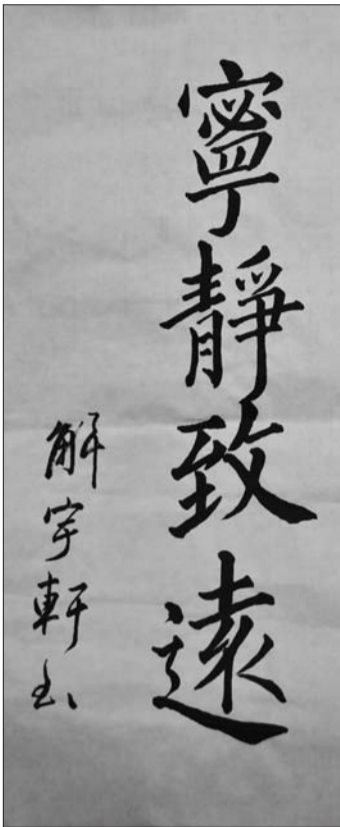 寧靜致遠
解宇軒書